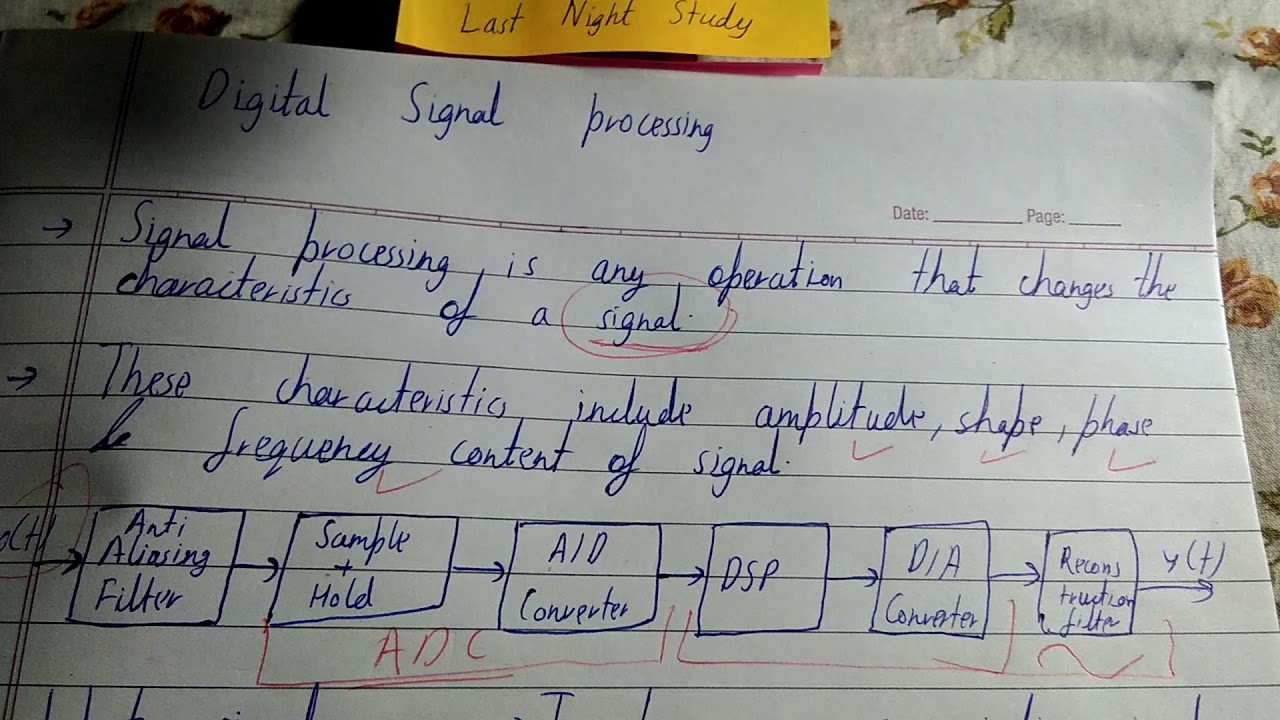 Last Night Study
Digital Signal processing
Date: Page:
→ Signal processing is any operation that changes the
characteristics of a signal.
→ These characteristics include amplitude, shape, phase
& frequency content of signal.
Anti
Aliasing
Filter
Sample
+
Hold
A/D
Converter
DSP
D/A
Converter
Recons
truction
filter
y(t)
ADC